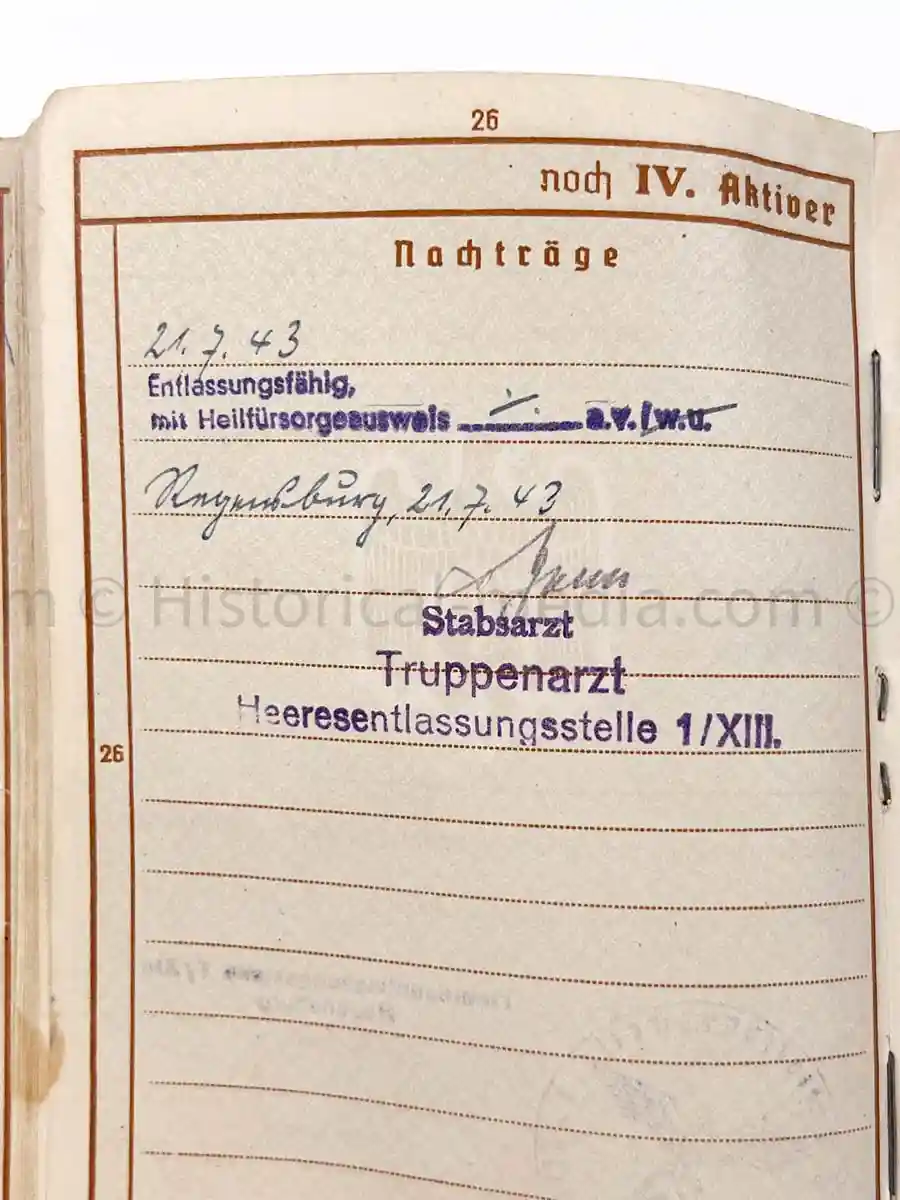 26
noch IV. Aktiver
Nachträge
21. 7. 43
Entlassungsfähig,
mit Heilfürsorgeausweis a.v./w.u.
Regensburg, 21. 7. 43
Stabsarzt
Truppenarzt
Heeresentlassungsstelle 1/XIII.
26
© HistoricalMedia.com ©